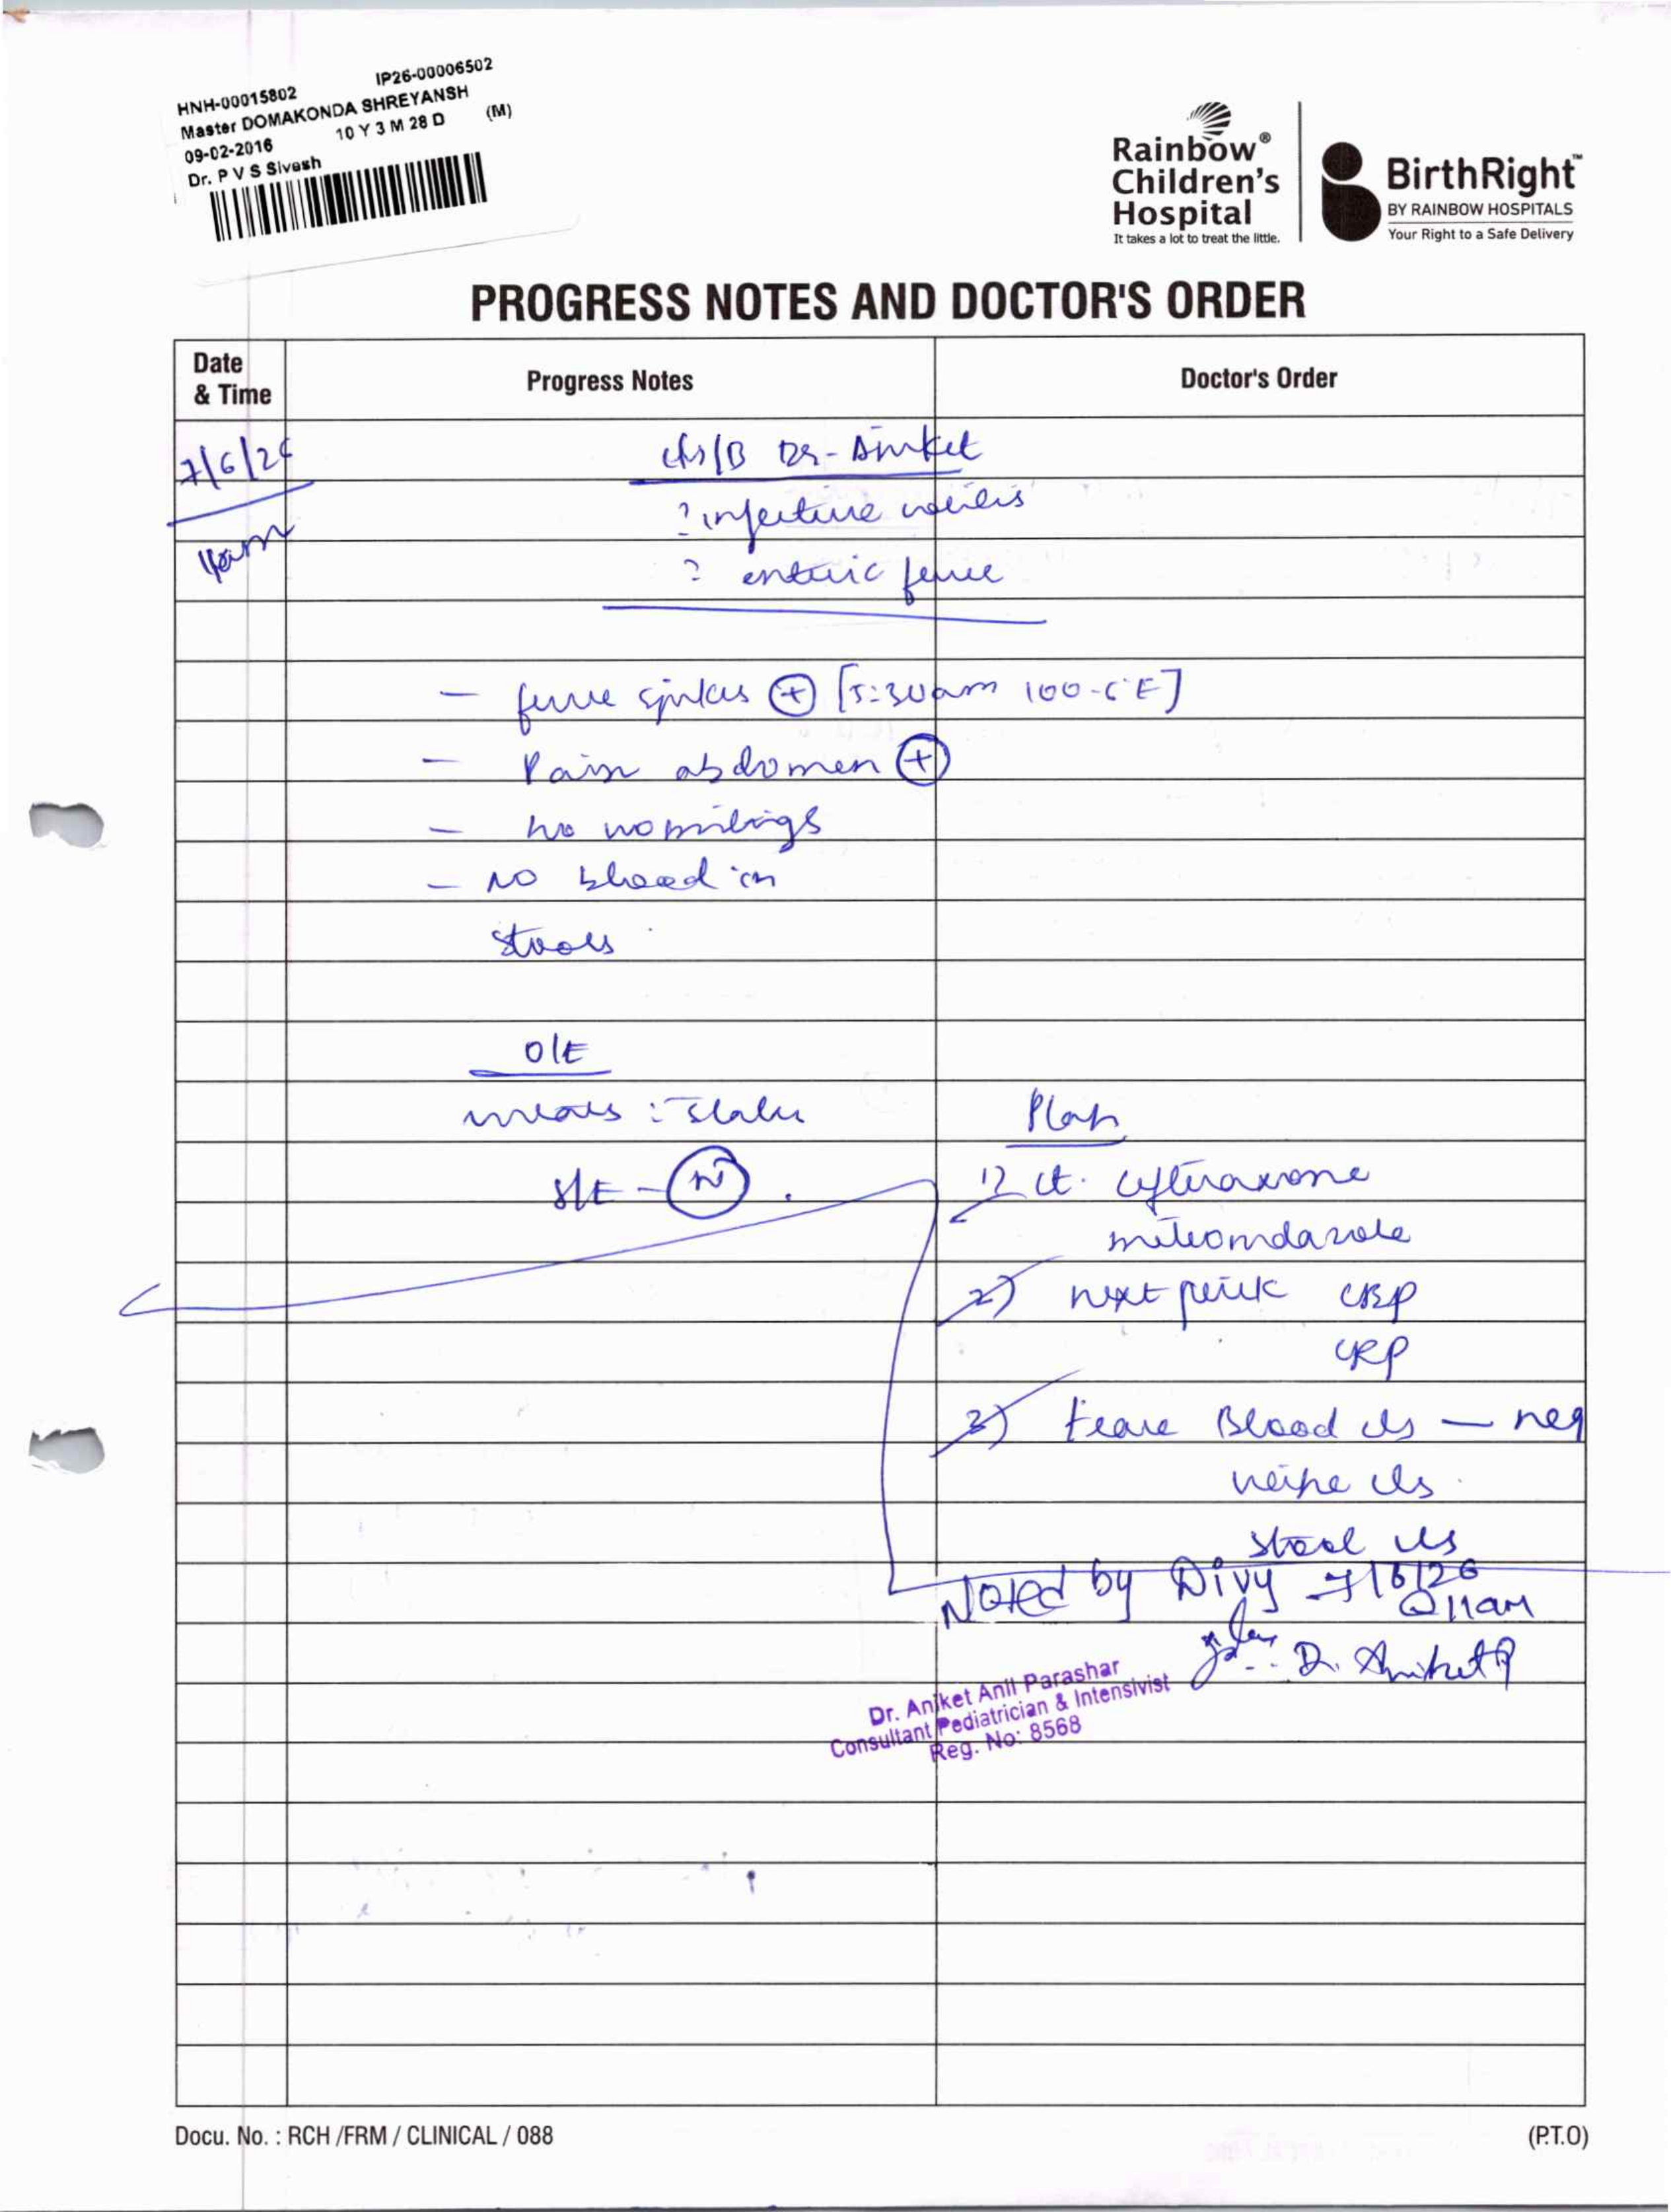 HNH-00015802 IP26-00006502
Master DOMAKONDA SHREYANSH
09-02-2016 10 Y 3 M 28 D (M)
Dr. P V S Sivesh
Rainbow®
Children's
Hospital
It takes a lot to treat the little.
BirthRight™
BY RAINBOW HOSPITALS
Your Right to a Safe Delivery
PROGRESS NOTES AND DOCTOR'S ORDER
Date
& Time
Progress Notes
Doctor's Order
7/6/26
11am
c/s/B Dr. Aniket
? infective
? enteric fever
- fever spikes (+) [5:30am 100.6°F]
- Pain abdomen (+)
- No vomitings
- No blood in
stools
O/E
vitals : stable
S/E - (N)
Plan
1) ct. ceftriaxone
metronidazole
2) next prick CBP
CRP
3) trace Blood c/s - neg
urine c/s
stool c/s
Noted by Divy 7/6/26
@11am
Dr. Aniket P
Dr. Aniket Anil Parashar
Consultant Pediatrician & Intensivist
Reg. No: 8568
Docu. No. : RCH /FRM / CLINICAL / 088
(P.T.O)